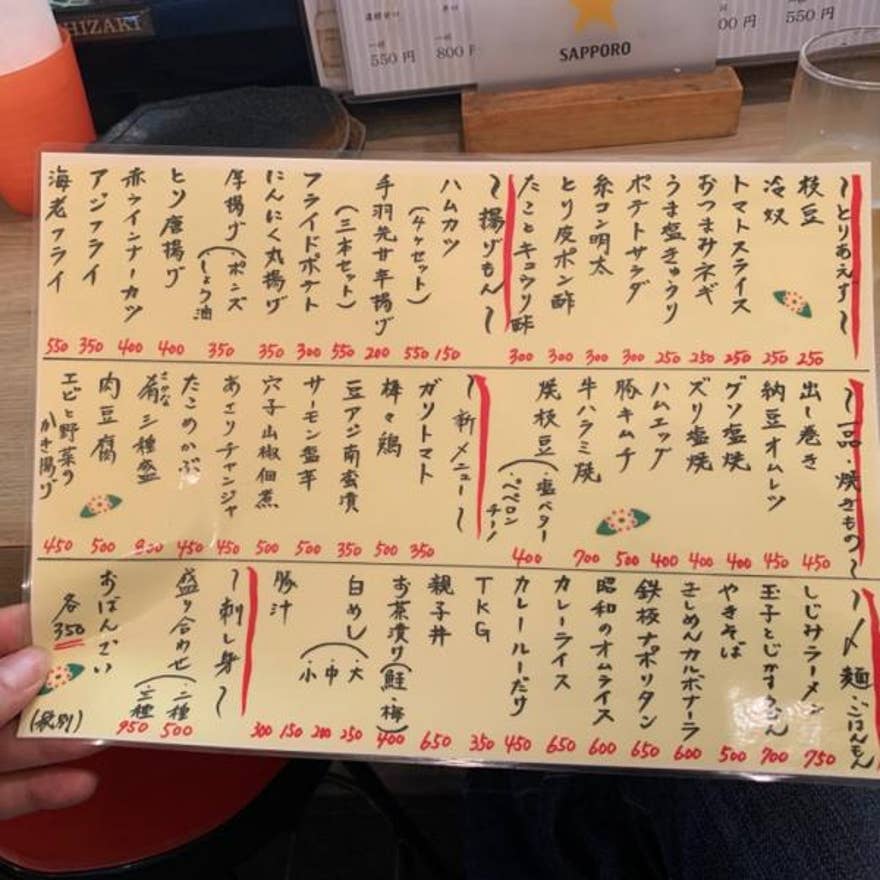 HIZAKI
550円
800円
SAPPORO
00円
550円
〜とりあえず〜
枝豆 250
冷奴 250
トマトスライス 250
おつまみネギ 250
うま塩きゅうり 250
ポテトサラダ 300
糸コン明太 300
とり皮ポン酢 300
たことキュウリ酢 300
〜揚げもん〜
ハムカツ 150
(4ヶセット) 550
手羽先甘辛揚げ 200
(三本セット) 550
フライドポテト 300
にんにく丸揚げ 350
厚揚げ(ポンズ・しょう油 350
とり唐揚げ 400
赤ウインナーカツ 400
アジフライ 350
海老フライ 550
〜一品・焼きもの〜
出し巻き 450
納豆オムレツ 450
ゲソ塩焼 400
ズリ塩焼 400
ハムエッグ 400
豚キムチ 500
牛ハラミ焼 700
焼枝豆(・塩バター・ペペロンチーノ 400
〜新メニュー〜
ガリトマト 350
棒々鶏 500
豆アジ南蛮漬 350
サーモン塩辛 500
穴子山椒佃煮 500
あさりチャンジャ 450
たこめかぶ 450
肴三種盛 800
さかな
肉豆腐 500
エビと野菜のかき揚げ 450
〜〆麺・ごはんもん
しじみラーメン 750
玉子とじかすうどん 700
やきそば 500
きしめんカルボナーラ 600
鉄板ナポリタン 650
昭和のオムライス 600
カレーライス 650
カレールーだけ 450
TKG 350
親子丼 650
お茶漬け(鮭・梅) 400
白めし(大・中・小 250 200 150
豚汁 300
〜刺し身〜
盛り合わせ(・二種・三種 500 950
おばんざい
各350
(税別)